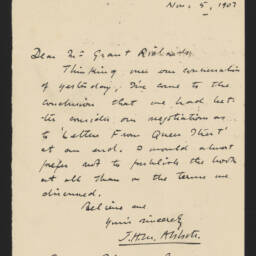 Nov. 5, 1907
Dear Mr Grant Richards,
Thinking over our conversation
of yesterday, I've come to the
conclusion that we had better
consider our negotiation as
to 'Letters From Queer Street'
at an end. I would almost
prefer not to publish the book
at all than on the terms we
discussed.
Believe me
Yours sincerely
J.H.M. Abbott.